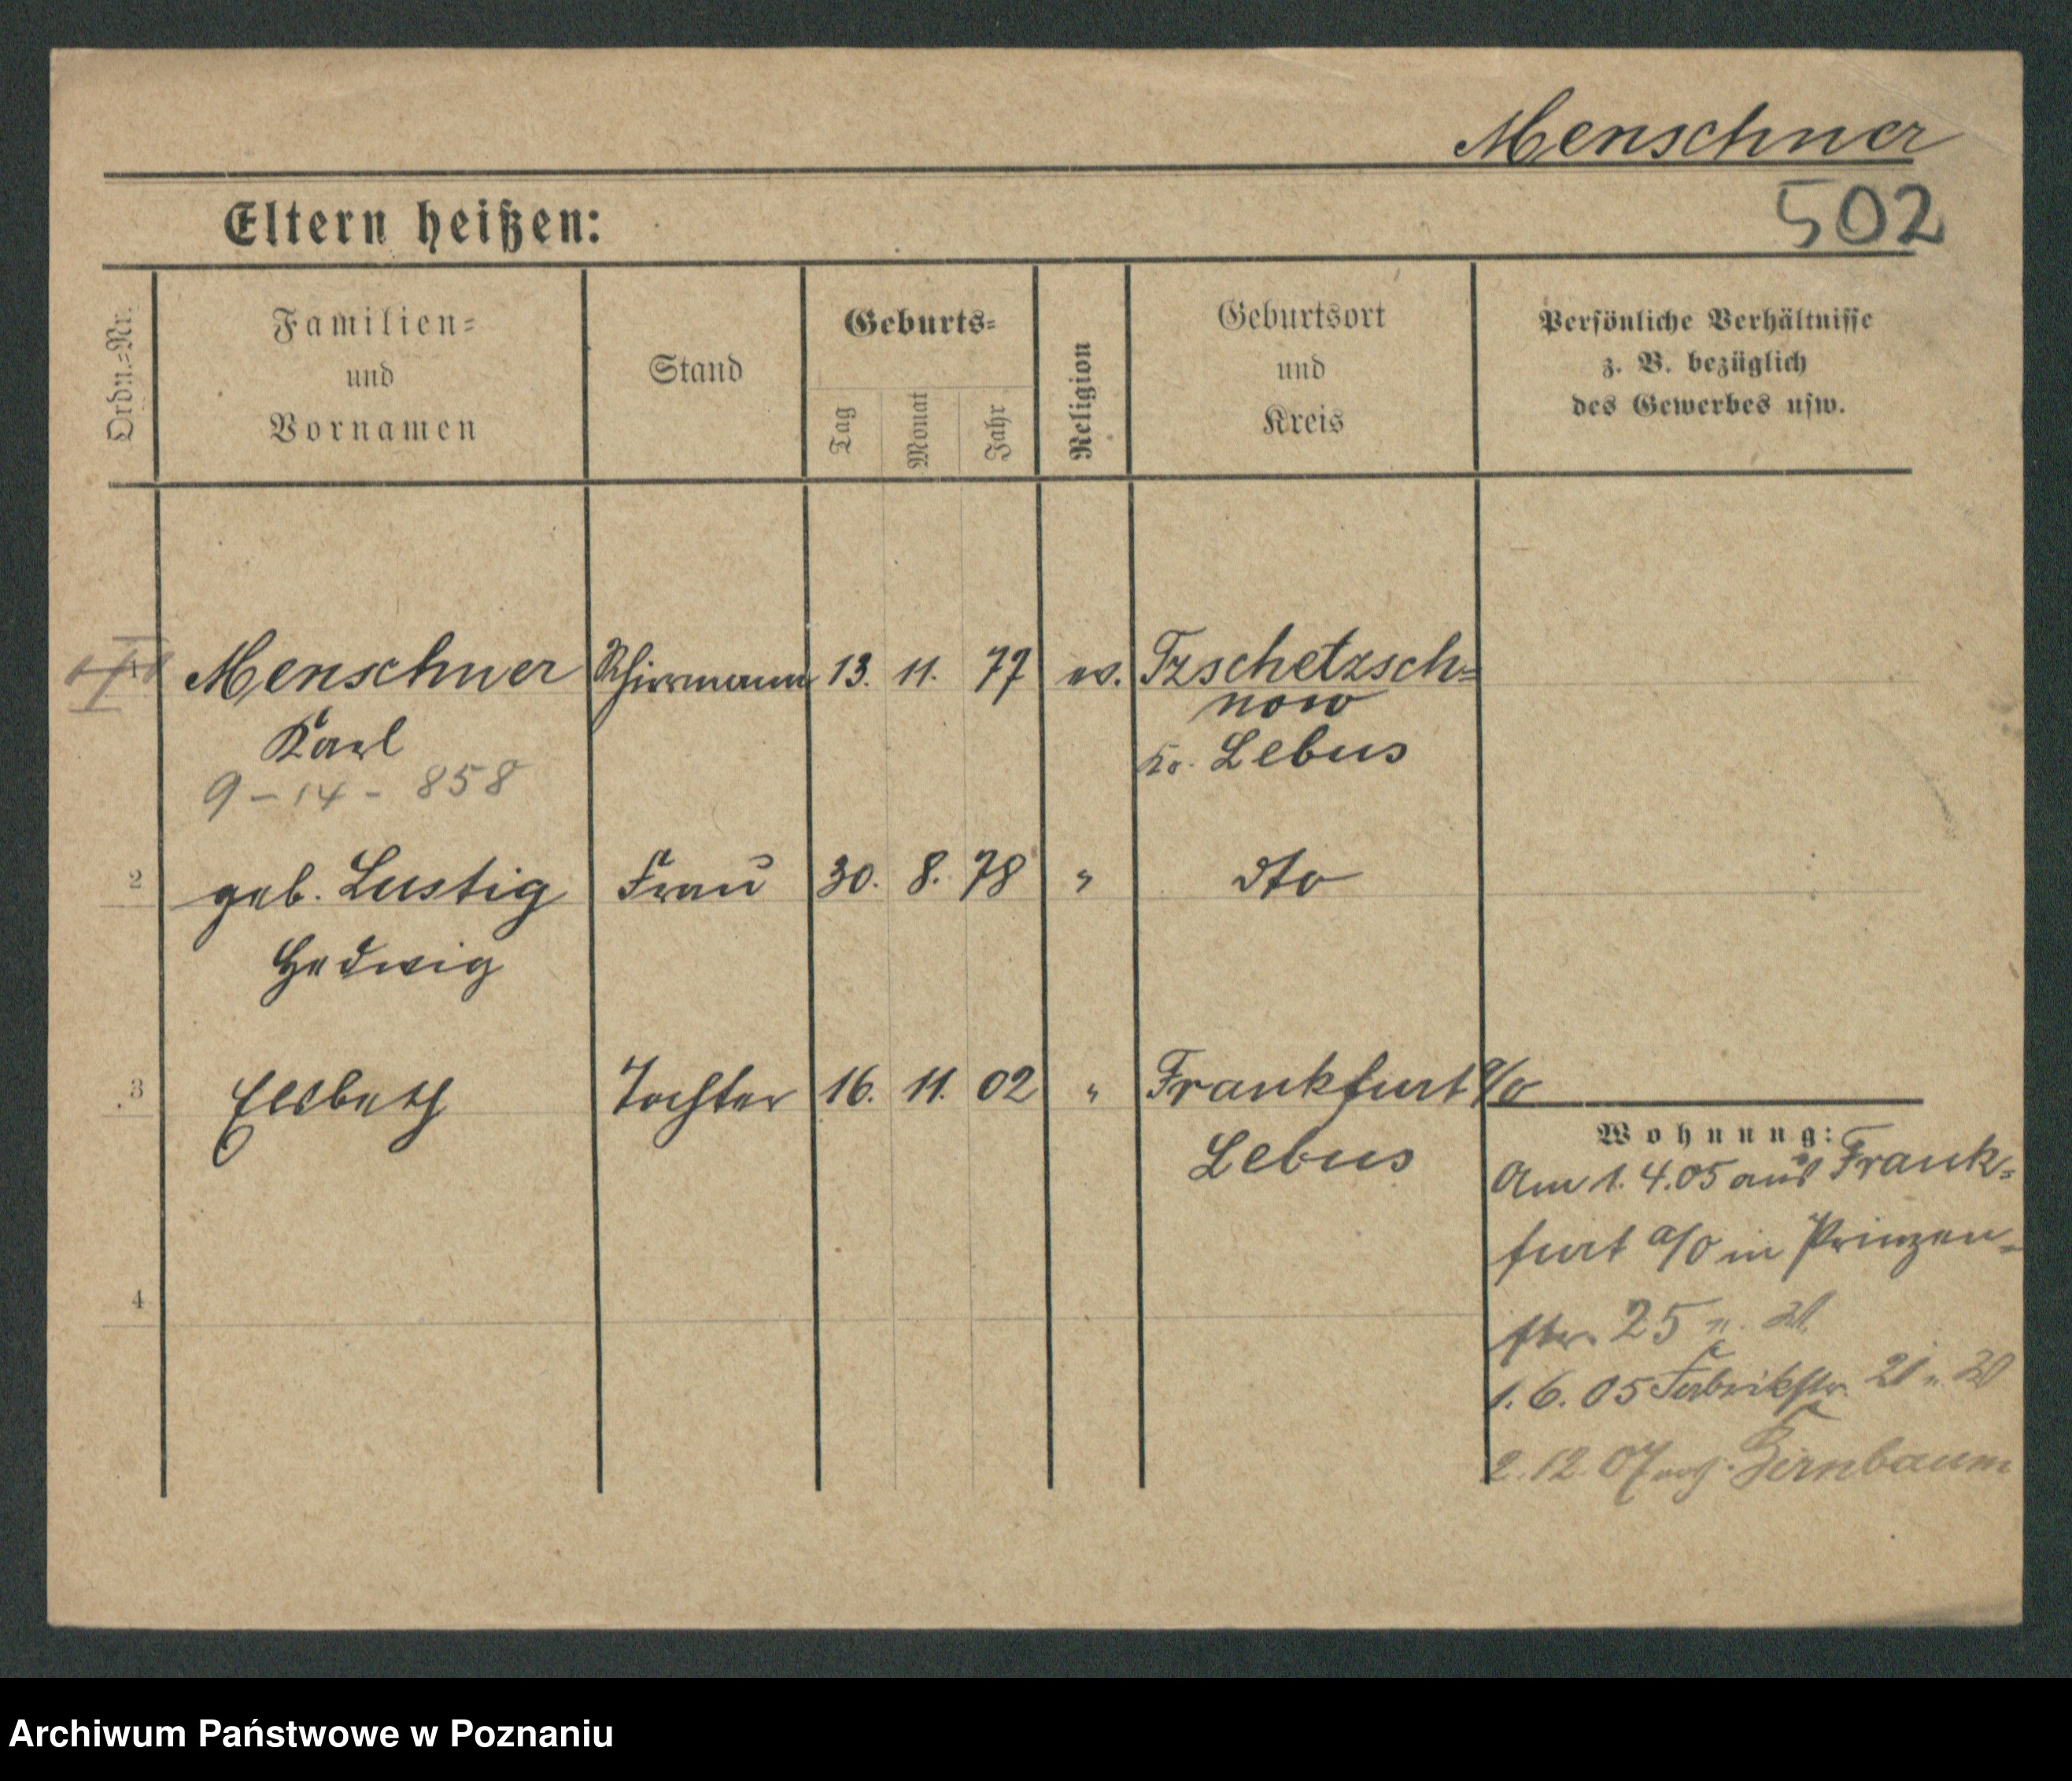 Menschner
502
Eltern heißen:
Ordn.-Nr.
Familien-
und
Vornamen
Stand
Geburts-
Tag
Monat
Jahr
Religion
Geburtsort
und
Kreis
Persönliche Verhältnisse
z. B. bezüglich
des Gewerbes usw.
1 Menschner Schirrmann 13. 11. 77 ev. Tzschetzsch-
now
Karl
Kr. Lebus
9 - 14 - 858
2 geb. Lustig Frau 30. 8. 78 " dto
Hedwig
3 Elsbeth Tochter 16. 11. 02 " Frankfurt a/o
Lebus
4
Wohnung:
Am 1. 4. 05 aus Frank-
furt a/O in Prinzen-
str. 25
1. 6. 05 Fabrikstr. 21
2. 12. 07 Birnbaum
Archiwum Państwowe w Poznaniu